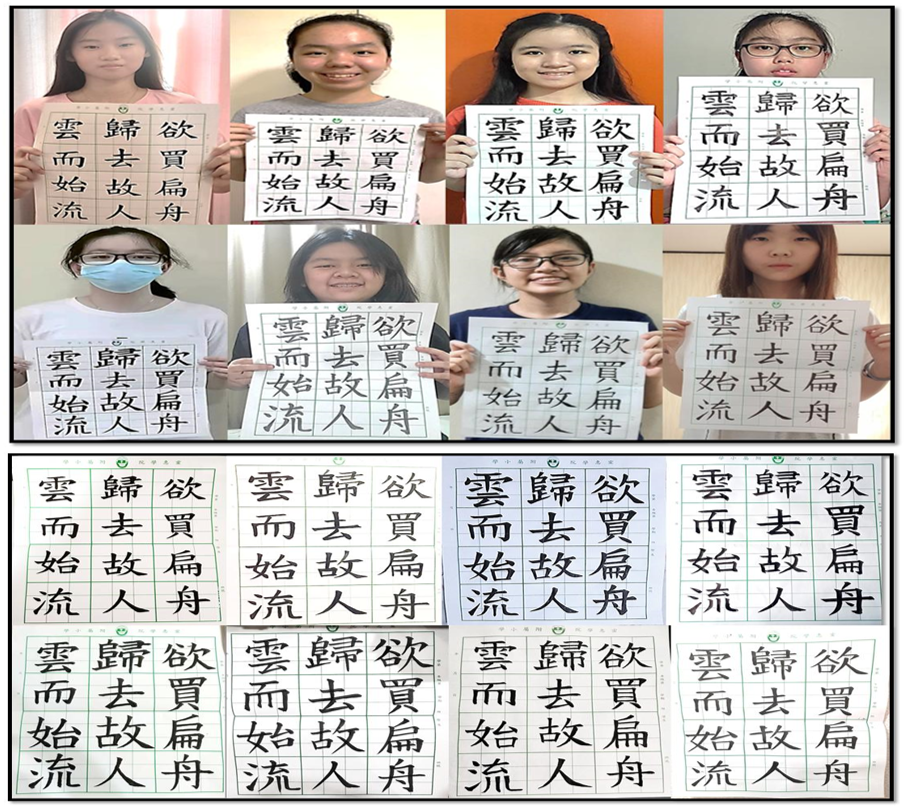 欲買扁舟
歸去故人
雲而始流
欲買扁舟
歸去故人
雲而始流
欲買扁舟
歸去故人
雲而始流
欲買扁舟
歸去故人
雲而始流
欲買扁舟
歸去故人
雲而始流
欲買扁舟
歸去故人
雲而始流
欲買扁舟
歸去故人
雲而始流
欲買扁舟
歸去故人
雲而始流
欲買扁舟
歸去故人
雲而始流
欲買扁舟
歸去故人
雲而始流
欲買扁舟
歸去故人
雲而始流
欲買扁舟
歸去故人
雲而始流
欲買扁舟
歸去故人
雲而始流
欲買扁舟
歸去故人
雲而始流
欲買扁舟
歸去故人
雲而始流
欲買扁舟
歸去故人
雲而始流